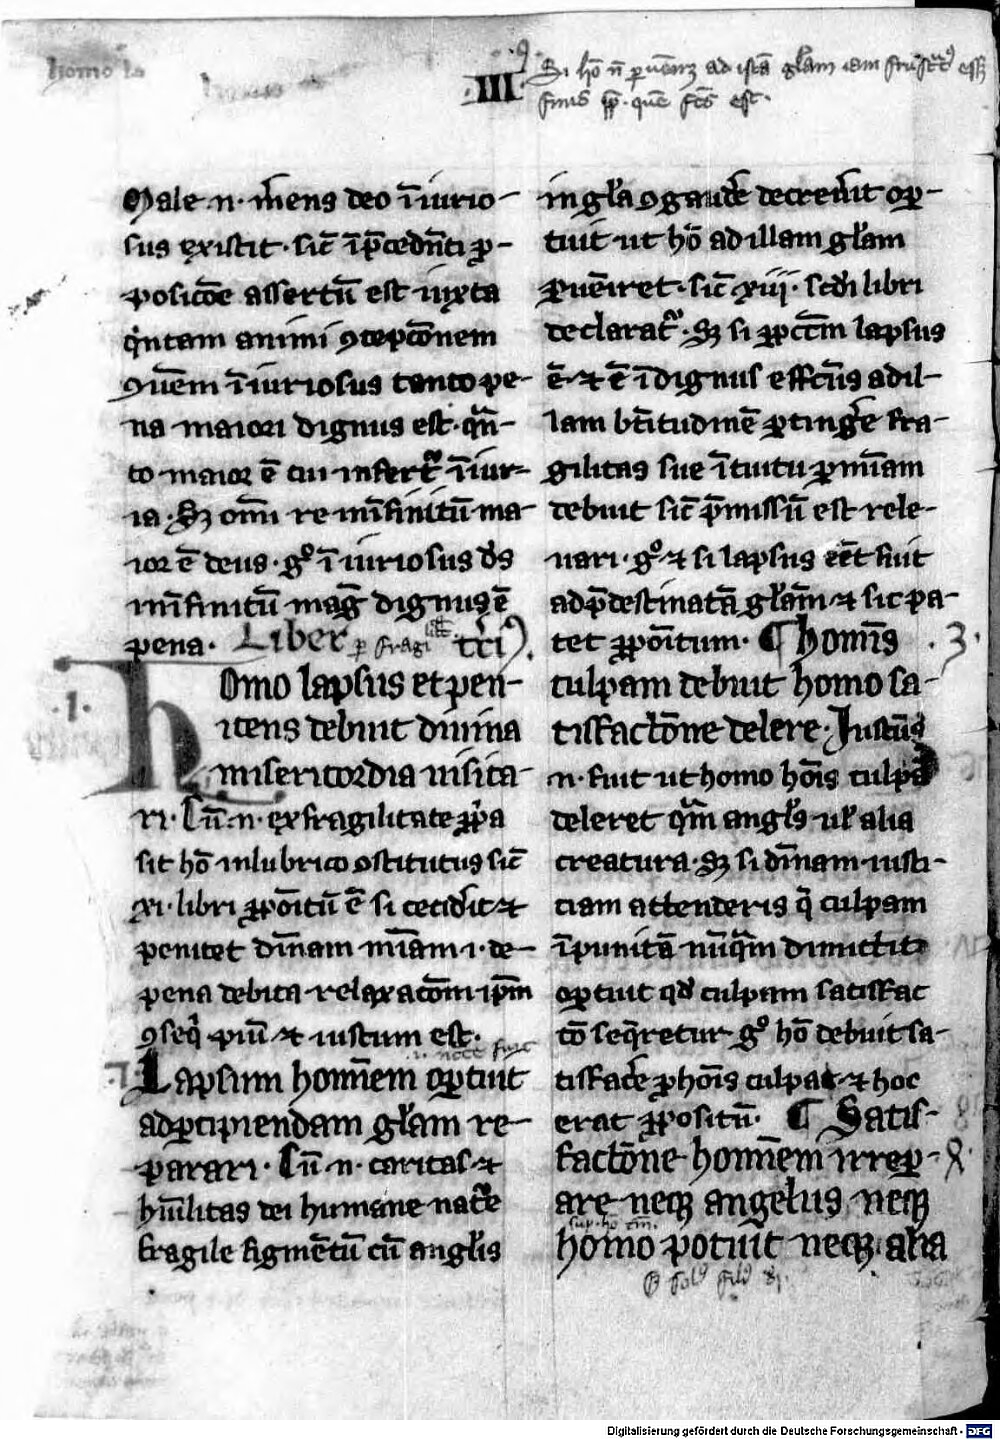 homo la
III
Si hō n̄ ꝑuēiꝫ ad istā gl̄am iam frustᵃtꝰ esset
finis ꝓpt̄ quē fc̄s est.
Male .n. m̄ens deo īiurio-
sus existit. sic̄ īp̄cedn̄ti ꝓ-
posicōe assertū est iuxta
qⁱntam animi ꝯcepcōnem
ꝯuēm īiuriosus tanto pe-
na maiori dignus est. qᵃn-
to maior ē cui infert̄ īiur-
ia. Sꝫ om̄i re īfinitū ma-
ior ē deus. gᵒ īiuriosus d̄s
īfinitū maḡ dignus ē
pena. Liber tc̄iꝰ.
Homo lapsus et pen-
itens debuit diuina
misericordia uisita-
ri. Cū .n. ex fragilitate ꝓpⁱa
sit hō in lubrico ꝯstitutus sic̄
xi. libri ꝓpōitū ē si cecid̄it ⁊
penitet diuīnam mīam .i. de-
pena debita relaxacōm ip̄m
ꝯseqⁱ piū ⁊ iustum est.
Lapsum homīem oꝑtuit
ad ꝑcipiendam gl̄am re-
parari. Cū .n. caritas ⁊
hūilitas dei humane nat̄e
fragile figmētū cū angl̄is
in gl̄a ꝯgaud̄e decreuit oꝑ-
tuit ut hō ad illam gl̄am
ꝑuēiret. sic̄ xiij. scd̄i libri
declarat̄. Sꝫ si ꝓpt̄ pcc̄m lapsus
ē. ⁊ ē īdignus effcūs ad il-
lam btītudinē ꝑting̃e fra-
gilitas sue ītuitu ꝑ mīam
debuit sic̄ p̄missū est rele-
uari. gᵒ ⁊ si lapsus eēt fuit
ad p̄destinatā gl̄am ⁊ sic pa-
tet ꝓpōitum. ¶ Homīs .3.
culpam debuit homo sa-
tisfactōne delere. Iustūs
.n. fuit ut homo hōis culpā
deleret qᵃm angl̄s ul̄ alia
creatura. Sꝫ si dīuinam iusti-
ciam attenderis q̄ culpam
īpunitā nūqᵃm dimittit
oꝑtuit qd̄ culpam satisfac
tō seq̄retur gᵒ hō debuit sa-
tisfac̄e ꝑ hōis culpa. ⁊ hoc
erat ꝓpositū. ¶ Satis-
factōne homīem irreꝑ-
are neqꝫ angelus neqꝫ
homo potuit neqꝫ alia
ꝫ solꝰ filiꝰ di.
Digitalisierung gefördert durch die Deutsche Forschungsgemeinschaft - DFG